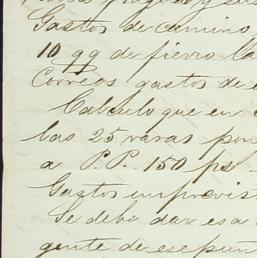 Gastos de camino
10 qq de fierro la
Correos gastos de
Calculo que en
las 25 varas por
a P.P. 150 ps
Gastos imprevis
Se debe dar esa
gente de ese pun